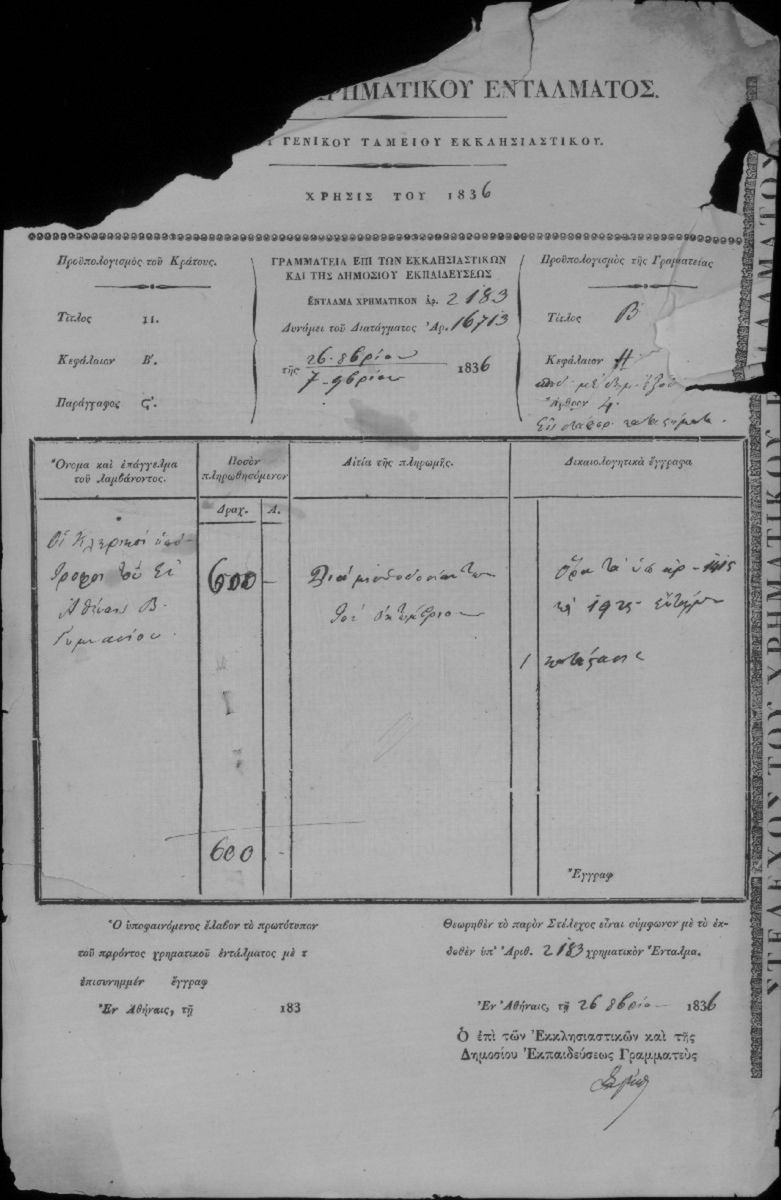 ΡΗΜΑΤΙΚΟΥ ΕΝΤΑΛΜΑΤΟΣ.
ΓΕΝΙΚΟΥ ΤΑΜΕΙΟΥ ΕΚΚΛΗΣΙΑΣΤΙΚΟΥ.
ΧΡΗΣΙΣ ΤΟΥ 1836
Προϋπολογισμὸς τοῦ Κράτους.
Τίτλος II.
Κεφάλαιον Β'.
Παράγραφος ς'.
ΓΡΑΜΜΑΤΕΙΑ ΕΠΙ ΤΩΝ ΕΚΚΛΗΣΙΑΣΤΙΚΩΝ
ΚΑΙ ΤΗΣ ΔΗΜΟΣΙΟΥ ΕΚΠΑΙΔΕΥΣΕΩΣ
ΕΝΤΑΛΜΑ ΧΡΗΜΑΤΙΚΟΝ ἀρ. 2183
Δυνάμει τοῦ Διατάγματος Ἀρ. 16713
τῆς 26 8βρίου / 7 9βρίου 1836
Προϋπολογισμὸς τῆς Γραμματείας
Τίτλος Β
Κεφάλαιον
Ἄρθρον 4.
Ὄνομα καὶ ἐπάγγελμα
τοῦ λαμβάνοντος.
Ποσὸν
πληρωθησόμενον
Δραχ. Λ.
Αἰτία τῆς πληρωμῆς.
Δικαιολογητικὰ ἔγγραφα
Οἱ Κληρικοὶ ὑπό-
τροφοι τοῦ ἐν
Ἀθήναις Β.
Γυμνασίου.
600 –
Διὰ μισθοδοσίαν των
τοῦ
Ὅρα τὰ ὑπ ἀρ 1415
1925
1
600
Ἔγγραφ
Ὁ ὑποφαινόμενος ἔλαβον τὸ πρωτότυπον
τοῦ παρόντος χρηματικοῦ ἐντάλματος μὲ τ
ἐπισυνημμέν ἔγγραφ
Ἐν Ἀθήναις, τῇ 183
Θεωρηθὲν τὸ παρὸν Στέλεχος εἶναι σύμφωνον μὲ τὸ ἐκ-
δοθὲν ὑπ' Ἀριθ. 2183 χρηματικὸν Ἔνταλμα.
Ἐν Ἀθήναις, τῇ 26 8βρίου 1836
Ὁ ἐπὶ τῶν Ἐκκλησιαστικῶν καὶ τῆς
Δημοσίου Ἐκπαιδεύσεως Γραμματεὺς
ΣΤΕΛΕΧΟΣ ΤΟΥ ΧΡΗΜΑΤΙΚΟΥ ΕΝΤΑΛΜΑΤΟΣ